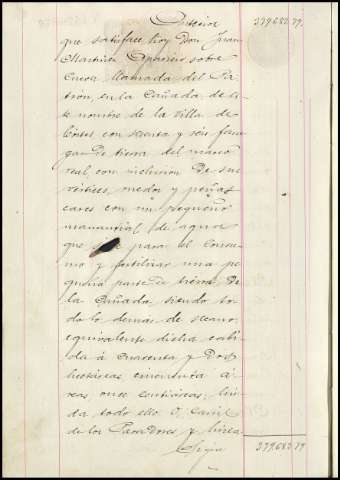 Anterior 379.683.79.
que satisface hoy Don Juan
Martinez Aparicio sobre
Cueva llamada del Pa-
trón, en la Cañada de es-
te nombre de la Villa de
con sesenta y seis fane-
gas de tierra del marco
real, con inclusion de sus
vertices, ruedos y peñas
cares con un pequeño
manantial de agua
que para el consu-
mo y fertilizar una pe-
queña parte de tierra de
la Cañada, siendo to-
do lo demas de secano,
equivalente dicha cabi-
da á cuarenta y dos
hectáreas cincuenta á-
reas once centiáreas; lin-
da todo ello O. Cami
de los Pasadores y linea
Sigue 379.683.79